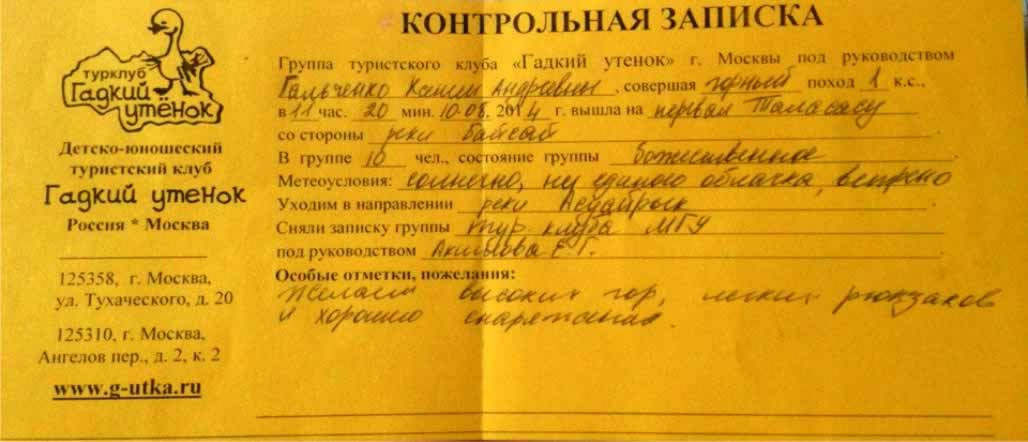 КОНТРОЛЬНАЯ ЗАПИСКА
турклуб
Гадкий
утёнок
Детско-юношеский
туристский клуб
Гадкий утенок
Россия * Москва
125358, г. Москва,
ул. Тухаческого, д. 20
125310, г. Москва,
Ангелов пер., д. 2, к. 2
www.g-utka.ru
Группа туристского клуба «Гадкий утенок» г. Москвы под руководством
Гальченко Андреевны, совершая горный поход 1 к.с.,
в 11 час. 20 мин. 10.08. 2014 г. вышла на перевал Таласасу
со стороны реки Байсай
В группе 10 чел., состояние группы Божественное
Метеоусловия: солнечно, ни единого облачка, ветрено
Уходим в направлении реки
Сняли записку группы тур клуба МГУ
под руководством Е.Г.
Особые отметки, пожелания:
Желаем высоких гор, легких рюкзаков
и хорошего снаряжения.